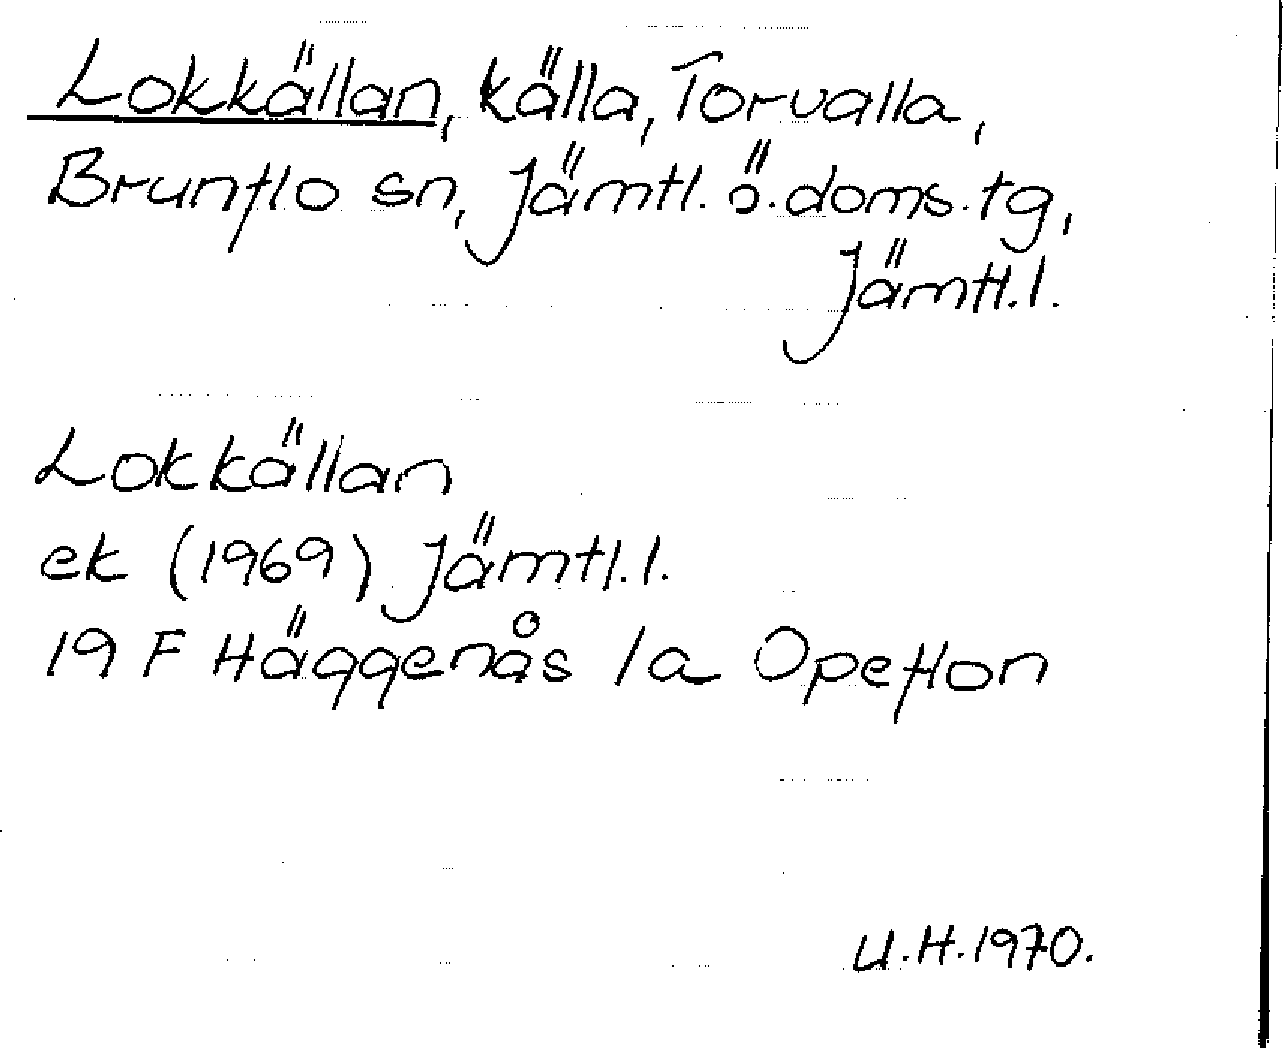 Lokkällan, källa, Torvalla,
Brunflo sn, Jämtl. ö. doms. tg,
Jämtl. l.
Lokkällan
ek (1969) Jämtl. l.
19 F Häggenås 1a Opeflon
U.H. 1970.